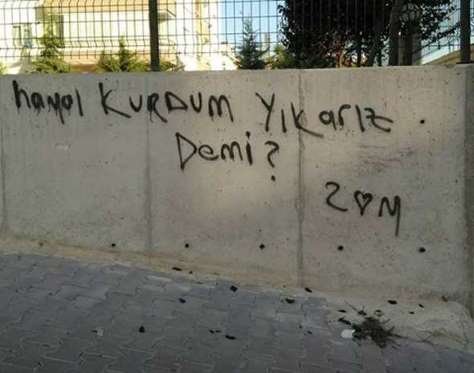 hayal KURDUM YıKarız
Demi?
2♥M